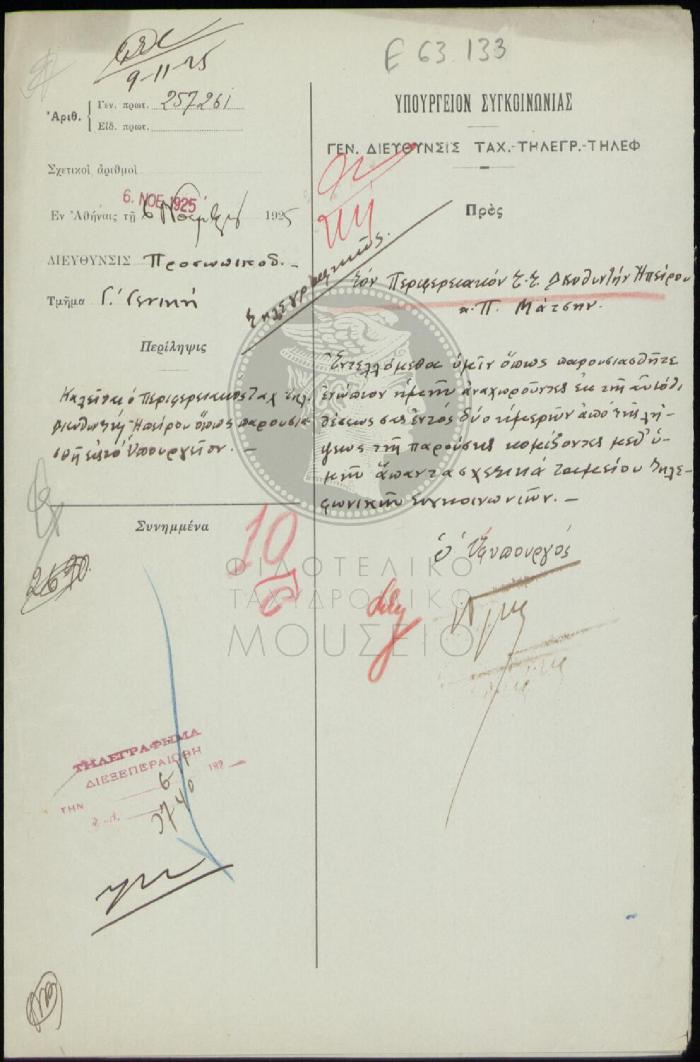 9-11-25
Ε 63.133
Ἀριθ. Γεν. πρωτ. 257261
Εἰδ. πρωτ.
Σχετικοὶ ἀριθμοὶ
6. ΝΟΕ. 1925
Ἐν Ἀθήναις τῇ 6 Νοεμβρίου 1925
ΔΙΕΥΘΥΝΣΙΣ Προσωπικοῦ.
Τμῆμα Γ.' Γενική
Περίληψις
Καλεῖται ὁ Περιφερειακὸς Ταχ. Τηλ.
Διευθυντὴς Ἠπείρου ὅπως παρουσια-
σθῇ εἰς τὸ Ὑπουργεῖον. —
Συνημμένα
2670
ΤΗΛΕΓΡΑΦΗΜΑ
ΔΙΕΞΕΠΕΡΑΙΩΘΗ
ΤΗΝ 6 192
ΥΠΟΥΡΓΕΙΟΝ ΣΥΓΚΟΙΝΩΝΙΑΣ
ΓΕΝ. ΔΙΕΥΘΥΝΣΙΣ ΤΑΧ.-ΤΗΛΕΓΡ.-ΤΗΛΕΦ
Πρὸς
Τηλεγραφικῶς.
Τὸν Περιφερειακὸν Τ.Τ. Διευθυντὴν Ἠπείρου
κ. Π. Μάτσην.
Ἐντελλόμεθα ὑμῖν ὅπως παρουσιασθῆτε
ἐνώπιον ἡμῶν ἀναχωροῦντες ἐκ τῆς αὐτόθι
θέσεως σας ἐντὸς δύο ἡμερῶν ἀπὸ τῆς λή-
ψεως τῆς παρούσης κομίζοντες μεθ' ὑ-
μῶν ἅπαντα σχετικὰ ταμείου Τηλε-
φωνικῶν συγκοινωνιῶν. —
ὁ Ὑφυπουργός
10
ΦΙΛΟΤΕΛΙΚΟ
ΤΑΧΥΔΡΟΜΙΚΟ
ΜΟΥΣΕΙΟ